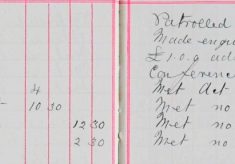 Patrolled
Made enqu
£1.0.9 ad
Conferenc
4 Met Act
10 30 Met no
12 30 Met no
2 30 Met no